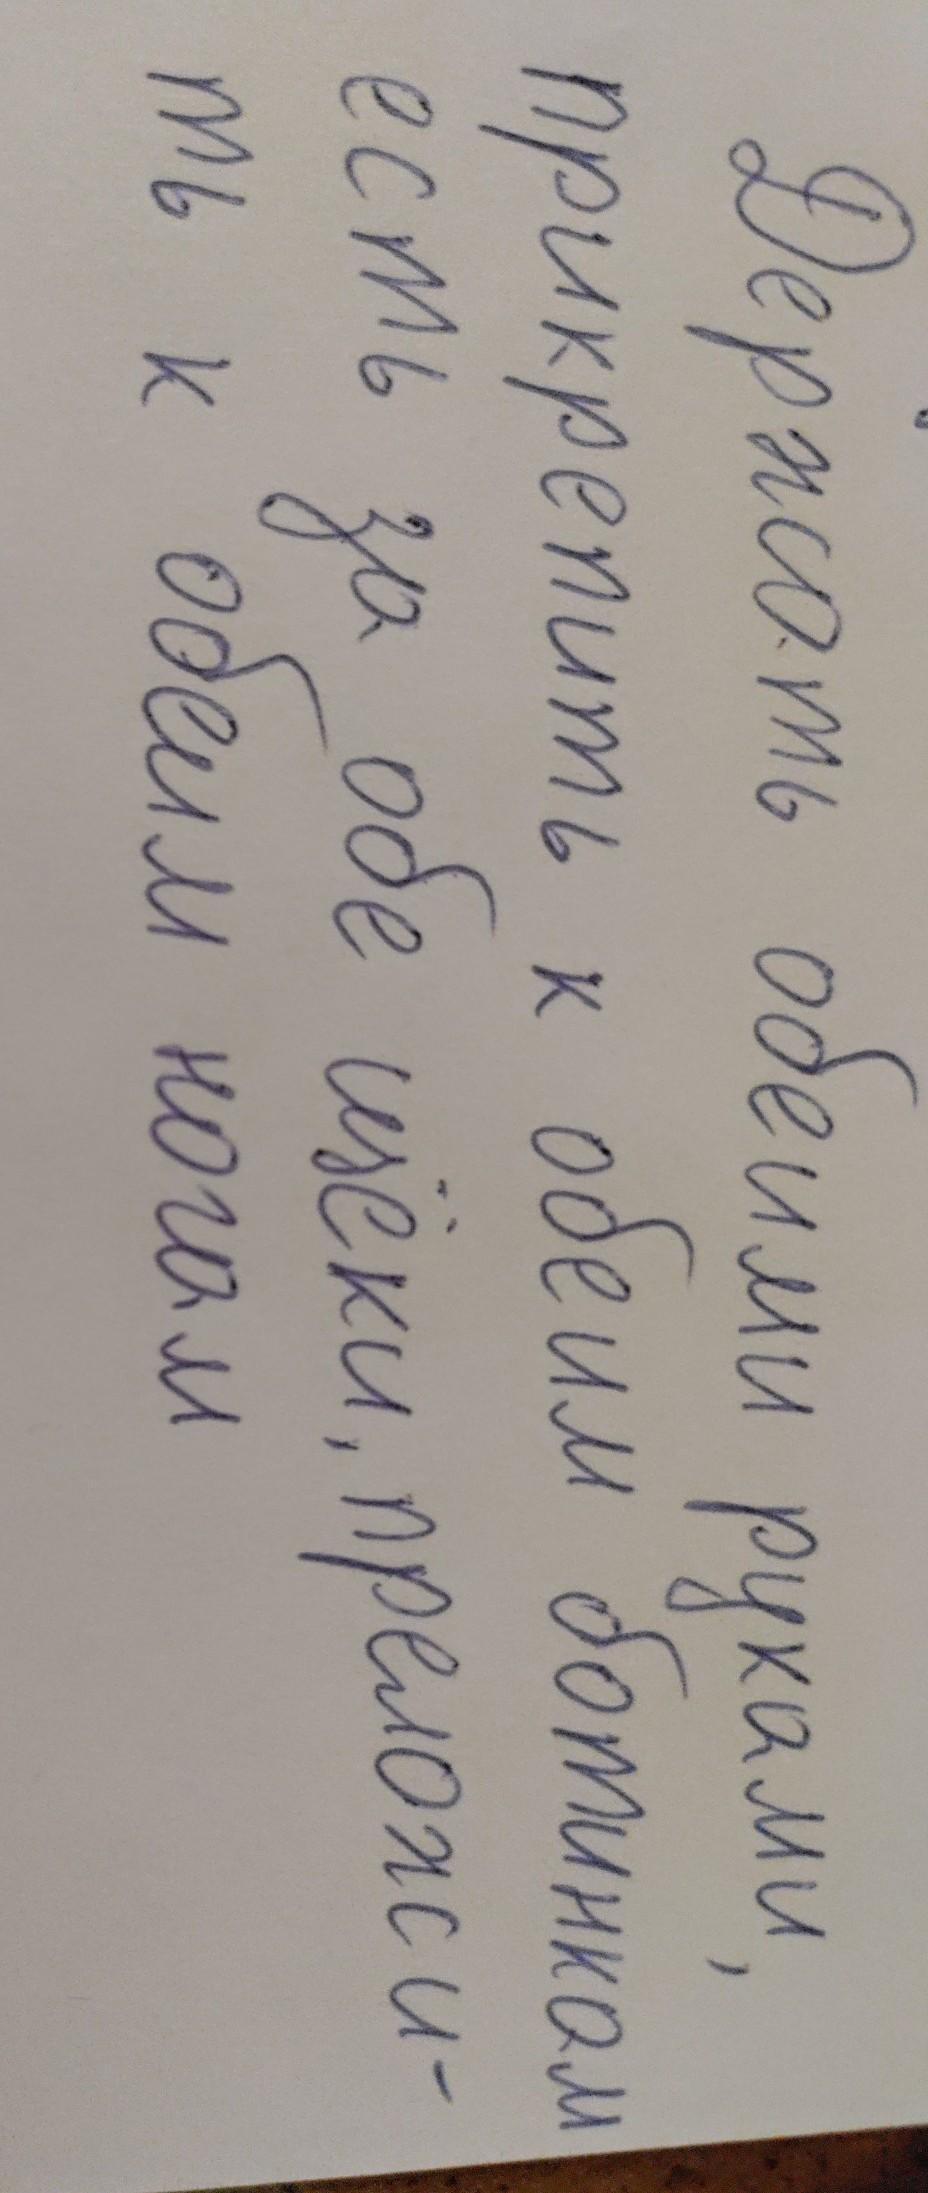 Держать обеими руками,
прикрепить к обеим ботинкам
есть за обе щёки, преложи-
ть к обеим ногам